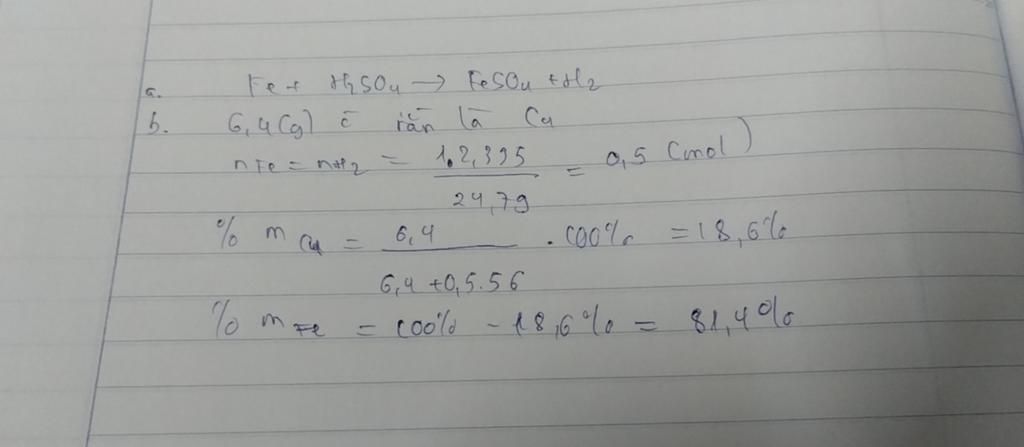 a. Fe + H2SO4 → FeSO4 + H2
b. 6,4 (g) c̄ rắn là Cu
nFe = nH2 = 12,395 / 24,79 = 0,5 (mol)
% mCu = 6,4 / 6,4 + 0,5.56 . 100% = 18,6%
% mFe = 100% - 18,6% = 81,4%